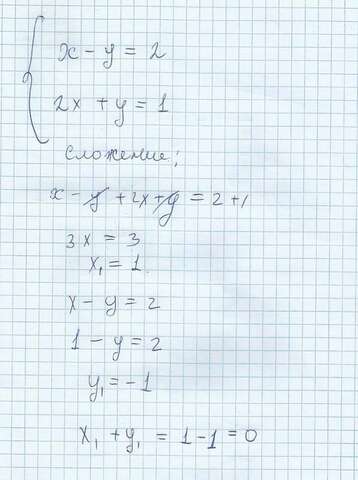 x - y = 2
2x + y = 1
сложение;
x - y + 2x + y = 2 + 1
3x = 3
x₁ = 1.
x - y = 2
1 - y = 2
y₁ = -1
x₁ + y₁ = 1 - 1 = 0